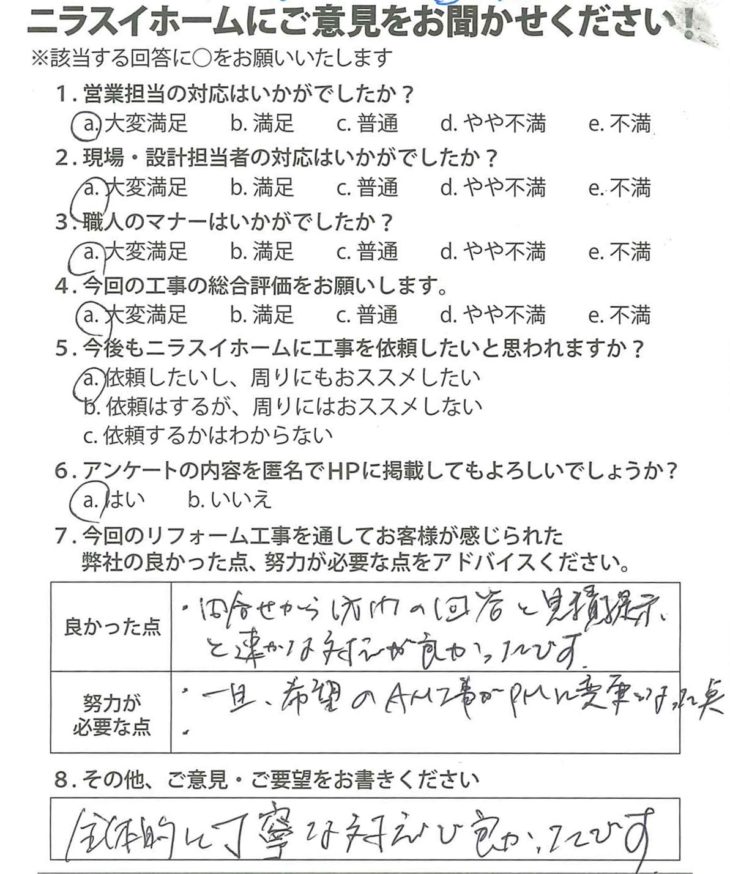 ニラスイホームにご意見をお聞かせください!
※該当する回答に○をお願いいたします
1. 営業担当の対応はいかがでしたか？
a. 大変満足 b. 満足 c. 普通 d. やや不満 e. 不満
2. 現場・設計担当者の対応はいかがでしたか？
a. 大変満足 b. 満足 c. 普通 d. やや不満 e. 不満
3. 職人のマナーはいかがでしたか？
a. 大変満足 b. 満足 c. 普通 d. やや不満 e. 不満
4. 今回の工事の総合評価をお願いします。
a. 大変満足 b. 満足 c. 普通 d. やや不満 e. 不満
5. 今後もニラスイホームに工事を依頼したいと思われますか？
a. 依頼したいし、周りにもおススメしたい
b. 依頼はするが、周りにはおススメしない
c. 依頼するかはわからない
6. アンケートの内容を匿名でHPに掲載してもよろしいでしょうか？
a. はい b. いいえ
7. 今回のリフォーム工事を通してお客様が感じられた
弊社の良かった点、努力が必要な点をアドバイスください。
良かった点
・問合せから の回答と見積提示、
と速かな対応が良かったです.
努力が
必要な点
・一旦、希望のAM工事がPMに変更になった点
・
8. その他、ご意見・ご要望をお書きください
全体的に丁寧な対応で良かったです.